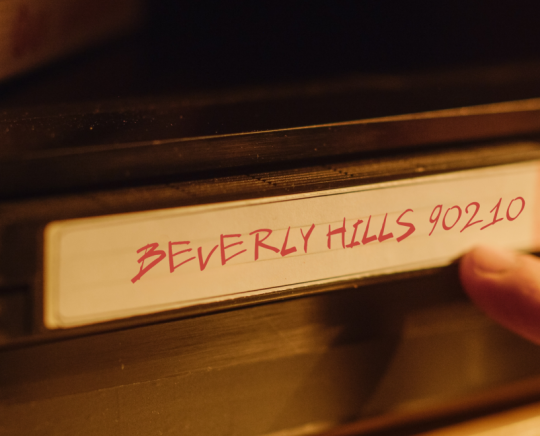 BEVERLY HILLS 90210